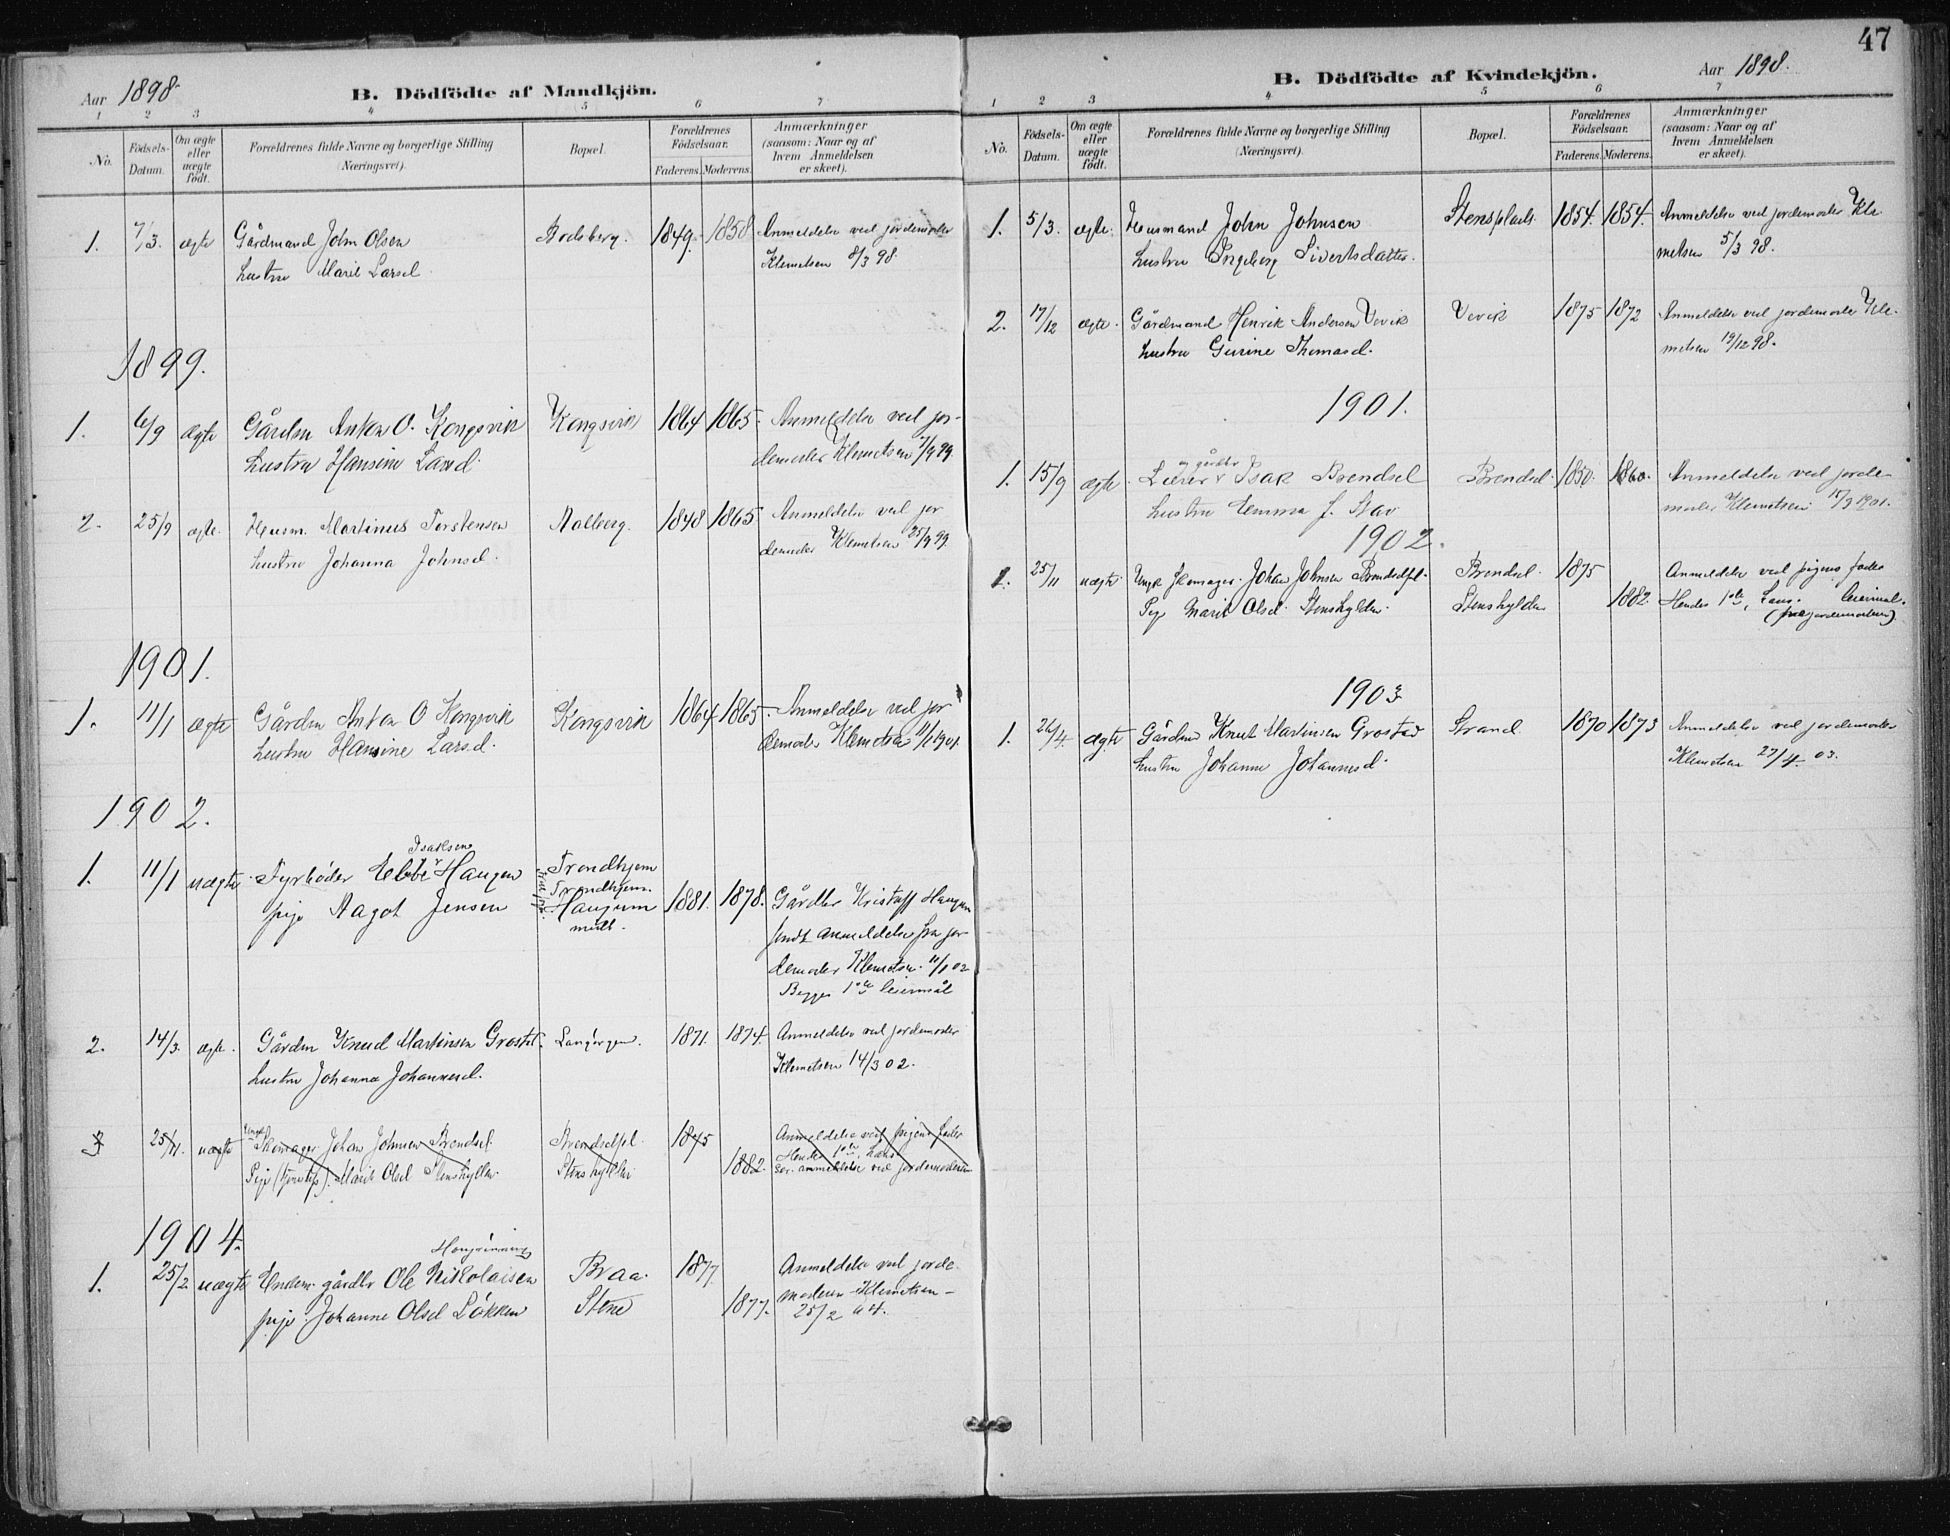 Aar 1898.
B. Dödfödte af Mandkjön.
1 2 3 4 5 6 7
No. Födsels-Datum. Om ægte eller uægte födt. Forældrenes fulde Navne og borgerlige Stilling (Næringsvei). Bopæl. Forældrenes Födselsaar. Faderens. Moderens. Anmærkninger (saasom: Naar og af hvem Anmeldelsen er skeet).
1. 7/3. ægte Gårdmand John Olsen 1849. 1858 Anmeldelse ved jordemoder
hustru Marit Larsd. Klemetsen 8/3 98.
1899.
1. 6/9 ægte Gårdm Anton O. Kongsvik Kongsvik 1864 1865. Anmeldelse ved jor-
hustru Hansine Larsd. demoder Klemetsen 7/9 99
2. 25/9 ægte. Husm. Martinus Torstensen Aalberg. 1848 1865 Anmeldelse ved jor
hustru Johanna Johnsd. demoder Klemetsen 25/9 99.
1901.
1. 11/1 ægte Gårdm Anton O Kongsvik Kongsvik 1864 1865. Anmeldelse ved jor
hustru Hansine Larsd. demoder Klemetsen 11/1 1901.
1902.
1. 11/1 uægte Fyrbøder Ebbe Isaksen Haugen Trondhjem
Trondhjem.
pige Aagot Jensen Haugum 1881. 1878. Gårdbr Kristoff Haugum
midl.
sendt anmeldelse fra jor
demoder Klemetsen 11/1 02
Begges 1ste leiermål
2. 14/3. ægte. Gårdm Knud Martinsen Grostad. Langørgen. 1871. 1874. Anmeldelse ved jordemoder
hustru Johanna Johannesd. Klemetsen 14/3 02.
3 25/11. uægte Ungk Skomager Johan Johnsen Brendsel. Brendselfel. 1875 Anmeldelse ved pigens fader
Pige Marit Olsd Stenshylden Stenshylden 1882. Hendes 1ste, hans
anmeldelse ved jordemoderen
1904.
Haugrønning
1. 25/2 uægte Underm. gårdbr Ole Nikolaisen Braa. 1877 Anmeldelse ved jorde-
pige Johanne Olsd Løkken Stene 1877. moderen Klemetsen -
25/2 04.
47
B. Dödfödte af Kvindekjön.
Aar 1898.
1 2 3 4 5 6 7
No. Födsels-Datum. Om ægte eller uægte födt. Forældrenes fulde Navne og borgerlige Stilling (Næringsvei). Bopæl. Forældrenes Födselsaar. Faderens. Moderens. Anmærkninger (saasom: Naar og af hvem Anmeldelsen er skeet).
1. 5/3. ægte. Husmand John Johnsen Stensplads 1854. 1854. Anmeldelse ved jordemoder Kle
hustru Ingeborg Sivertsdatter. metsen 5/3 98.
2. 17/12 ægte. Gårdmand Henrik Andersen Vevik Vevik 1875 1872 Anmeldelse ved jordemoder Kle-
hustru Gurine Thomasd. metsen 19/12 98.
1901.
1. 15/9 ægte. Lærer og gårdbr Isak Brendsel Brendsel. 1850. 1860. Anmeldelse ved jorde-
hustru Emma J. Stav moder Klemetsen 15/9 1901.
1902.
1. 25/11 uægte. Ungk Skomager. Johan Johnsen Brendselfel. Brendsel. 1875 Anmeldelse ved pigens fader
Pige Marit Olsd. Stenshylden. Stenshylden 1882. Hendes 1ste, hans leiermål.
(fra jordemoderen)
1903
1. 26/4. ægte Gårdm Knut Martinsen Grostad Strand 1870 1873 Anmeldelse ved jordemoder
hustru Johanne Johannesd. Klemetsen 27/4. 03.